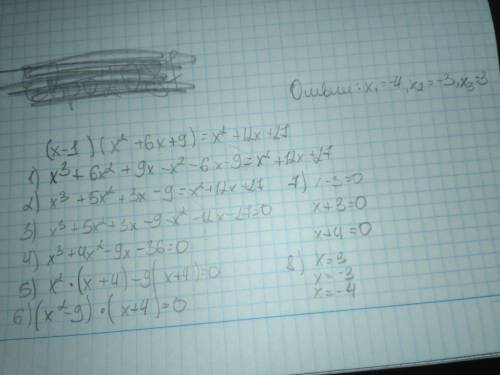 Ответ: x₁=-4, x₂=-3, x₃=3
(x-1)(x²+6x+9)=x²+12x+27
1) x³+6x²+9x-x²-6x-9=x²+12x+27
2) x³+5x²+3x-9=x²+12x+27
3) x³+5x²+3x-9-x²-12x-27=0
4) x³+4x²-9x-36=0
5) x²·(x+4)-9(x+4)=0
6) (x²-9)·(x+4)=0
7) x-3=0
x+3=0
x+4=0
8) x=3
x=-3
x=-4